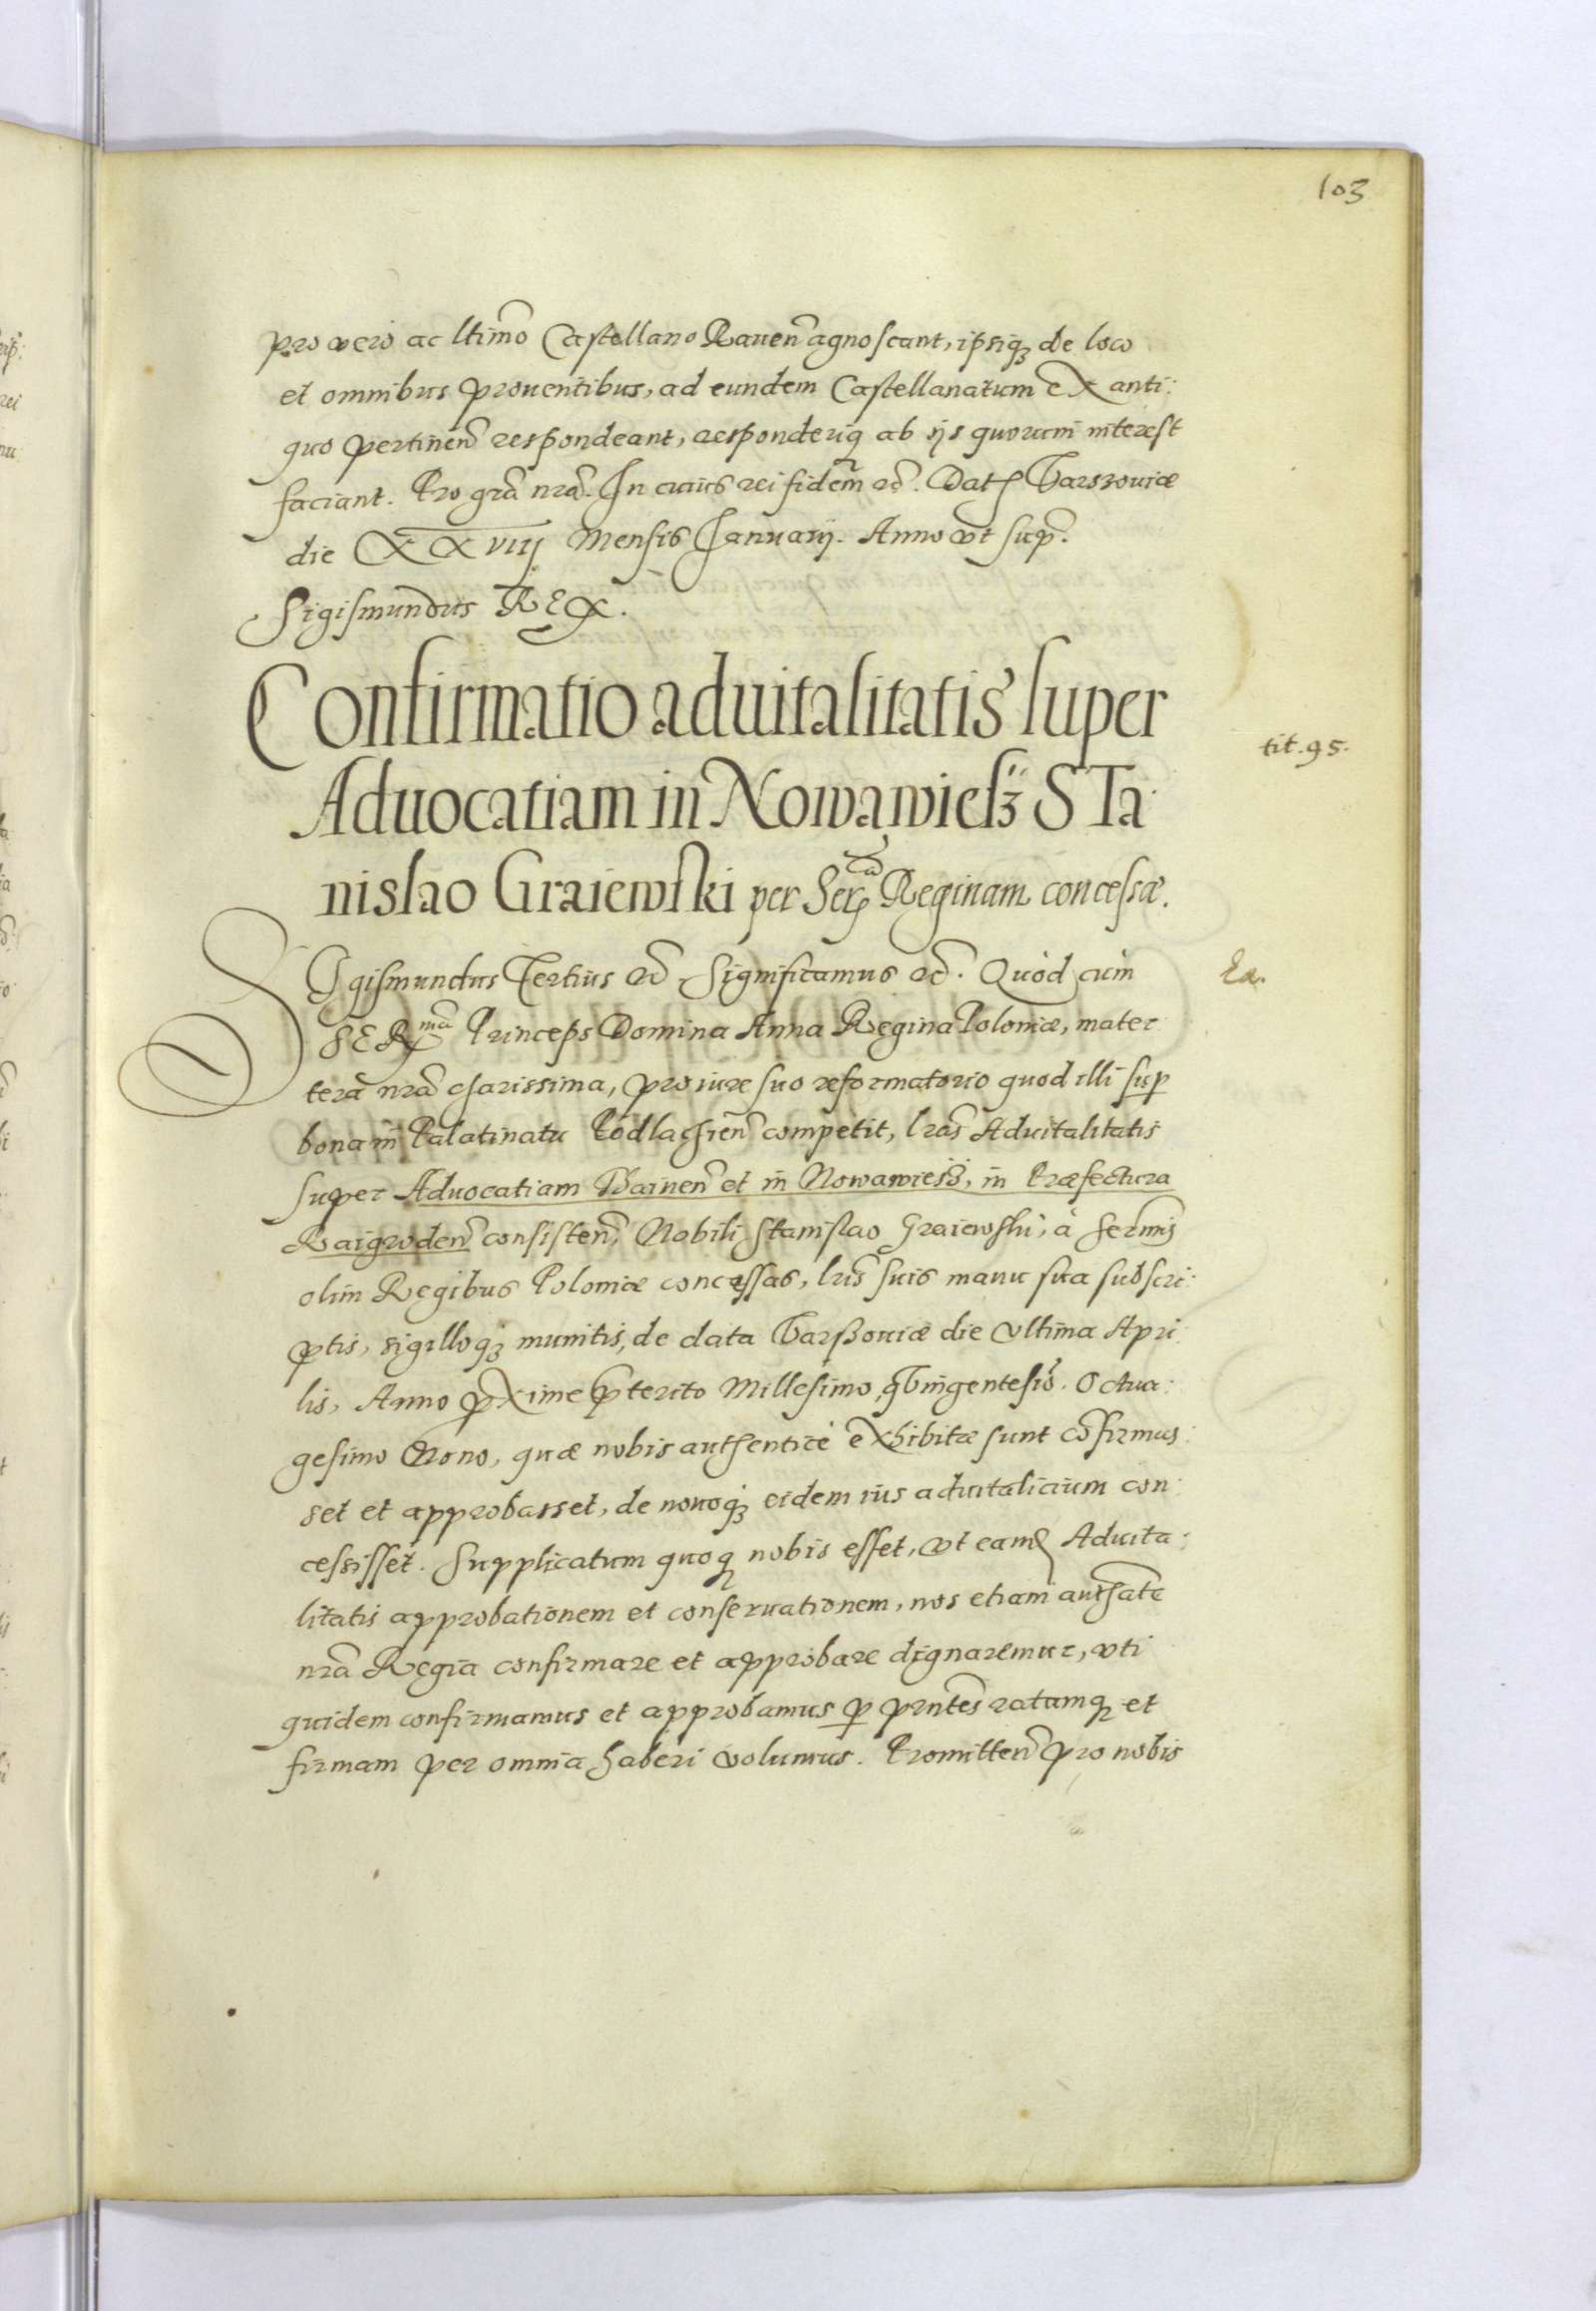 103
pro vero ac ltimo Castellano Rauen agnoscant, ipsiqꝫ de loco
et omnibus prouentibus, ad eundem Castellanatum ex anti:
quo pertinen respondeant, responderiqꝫ ab ijs quorum interest
faciant. Pro gra nra. In cuius rei fidem etc. Dat Varszouiæ
die XXVIIJ Mensis Januarij. Anno vt sup.
Sigismundus REX.
Confirmatio aduitalitatis super
Aduocatiam in Nowawiesz STa
nislao Graiewski per Ser Reginam concessæ.
tit. 95.
SIgismundus Tertius etc Significamus etc. Quod cum
SERma Princeps Domina Anna Regina Poloniæ, mater
tera nra charissima, pro iure suo reformatorio quod illi sup
bona in Palatinatu Podlachien competit, lras Aduitalitatis
super Aduocatiam et in Nowawiesz, in Præfectura
Raigroden consisten, Nobili Stanislao Graiewski, à Sermis
olim Regibus Poloniæ concessas, lris suis manu sua subscri:
ptis, sigilloqꝫ munitis, de data Varssouiæ die vltima Apri
lis, Anno proxime pterito Millesimo, qvingentesio. Octua:
gesimo Nono, quæ nobis authenticè exhibitæ sunt cofirmas:
set et approbasset, de nouoqꝫ eidem ius aduitalicium con:
cessisset. Supplicatum quoqꝫ nobis esset, vt eamd Aduita:
litatis approbationem et conseruationem, nos etiam authate
nra Regia confirmare et approbare dignaremur, vti
quidem confirmamus et approbamus p prntes ratamqꝫ et
firmam per omnia haberi volumus. Promitten pro nobis